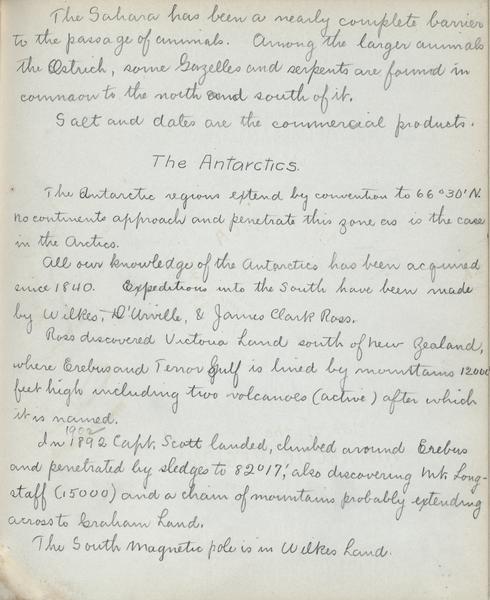 The Sahara has been a nearly complete barrier
to the passage of animals. Among the larger animals
the Ostrich, some Gazelles and serpents are found in
common to the north and south of it.
Salt and dates are the commercial products.
The Antarctics.
The Antarctic regions extend by convention to 66°30'N.
No continents approach and penetrate this zone as is the case
in the Arctics.
All our knowledge of the Antarctics has been acquired
since 1840. Expeditions into the South have been made
by Wilkes, D'Urville, & James Clark Ross.
Ross discovered Victoria Land south of New Zealand,
where Erebus and Terror Gulf is lined by mountains 12000
feet high including two volcanoes (active) after which
it is named.
1902
In 1892 Capt. Scott landed, climbed around Erebus
and penetrated by sledges to 82°17', also discovering Mt. Long-
staff (15000) and a chain of mountains probably extending
across to Graham Land.
The South Magnetic pole is in Wilkes Land.